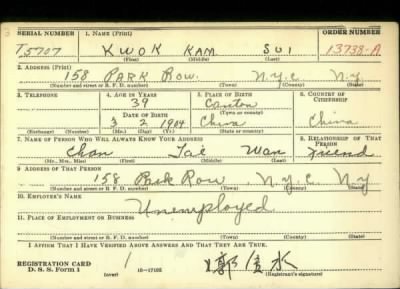 SERIAL NUMBER 1. NAME (Print) ORDER NUMBER
T5707 KWOK KAM SUI 13738-A
(First) (Middle) (Last)
2. ADDRESS (Print)
158 PARK ROW. N.Y.C N.Y.
(Number and street or R. F. D. number) (Town) (County) (State)
3. TELEPHONE 4. AGE IN YEARS 5. PLACE OF BIRTH 6. COUNTRY OF CITIZENSHIP
39 Canton
DATE OF BIRTH (Town or county)
3 2 1904 China China
(Exchange) (Number) (Mo.) (Day) (Yr.) (State or country)
7. NAME OF PERSON WHO WILL ALWAYS KNOW YOUR ADDRESS 8. RELATIONSHIP OF THAT PERSON
Chan Tai Wan Friend
(Mr., Mrs., Miss) (First) (Middle) (Last)
9. ADDRESS OF THAT PERSON
158 Park Row N.Y.C. NY
(Number and street or R. F. D. number) (Town) (County) (State)
10. EMPLOYER'S NAME
Unemployed
11. PLACE OF EMPLOYMENT OR BUSINESS
(Number and street or R. F. D. number) (Town) (County) (State)
I AFFIRM THAT I HAVE VERIFIED ABOVE ANSWERS AND THAT THEY ARE TRUE.
REGISTRATION CARD
D. S. S. Form 1 (over) 16—17105 郭 水
(Registrant's signature)